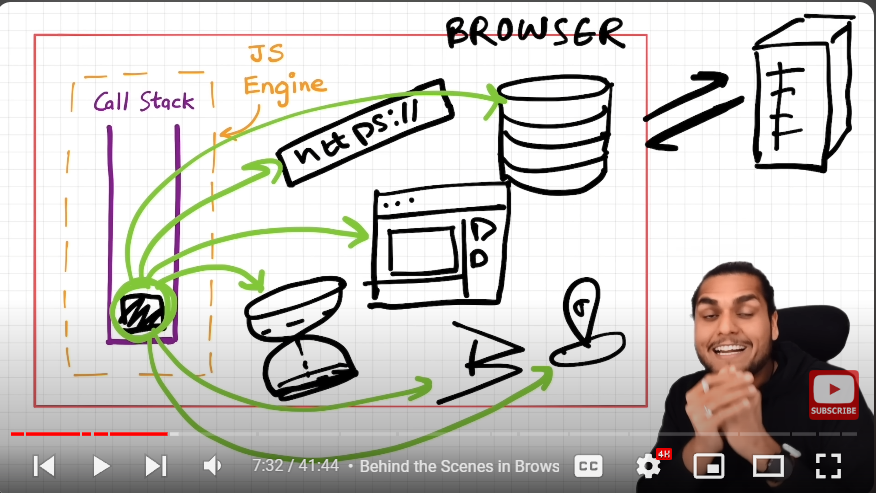 BROWSER
JS
Engine
Call Stack
https://
B
SUBSCRIBE
7:32 / 41:44 • Behind the Scenes in Brows
CC
4K